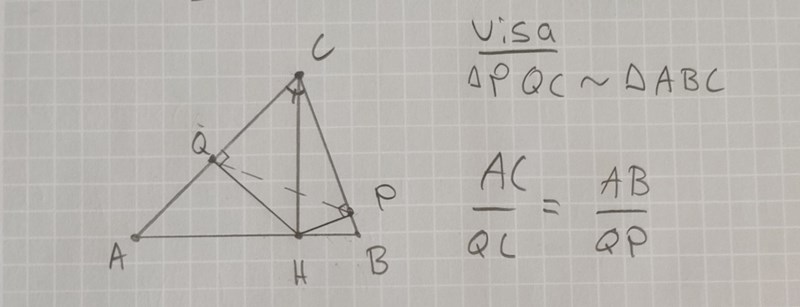 C
Q
P
A
H
B
Visa
ΔPQC ~ ΔABC
AC/QC = AB/QP